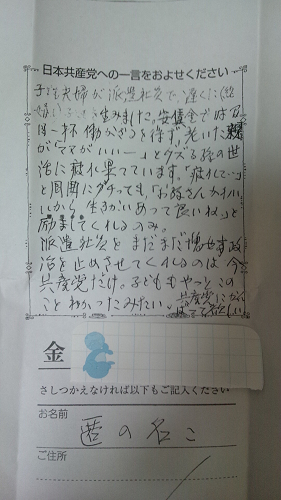 日本共産党への一言をおよせください
子ども夫婦が派遣社員で、遅くに(
生みました。安賃金では
目一杯働かざるを得ず、老いた親
が「ママがいいー」とグズる孫の世
話に疲れ果てています。「疲れてー」
と周囲にグチっても、「お孫さんかわい
いから、生きがいあって良いね。」と
励ましてくれるのみ。
派遣社員をまだまだ増やす政
治を止めさせてくれるのは、今
共産党だけ。子どももやっとこの
ことわかったみたい。共産党にがんば
ってほしい
金
さしつかえなければ以下もご記入ください
お名前
匿の名こ
ご住所